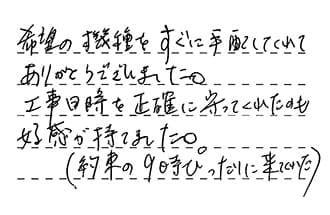 希望の機種をすぐに手配してくれて
ありがとうございました。
工事日時を正確に守ってくれたのも
好感が持てました。
(約束の9時ぴったりに来てくれた)